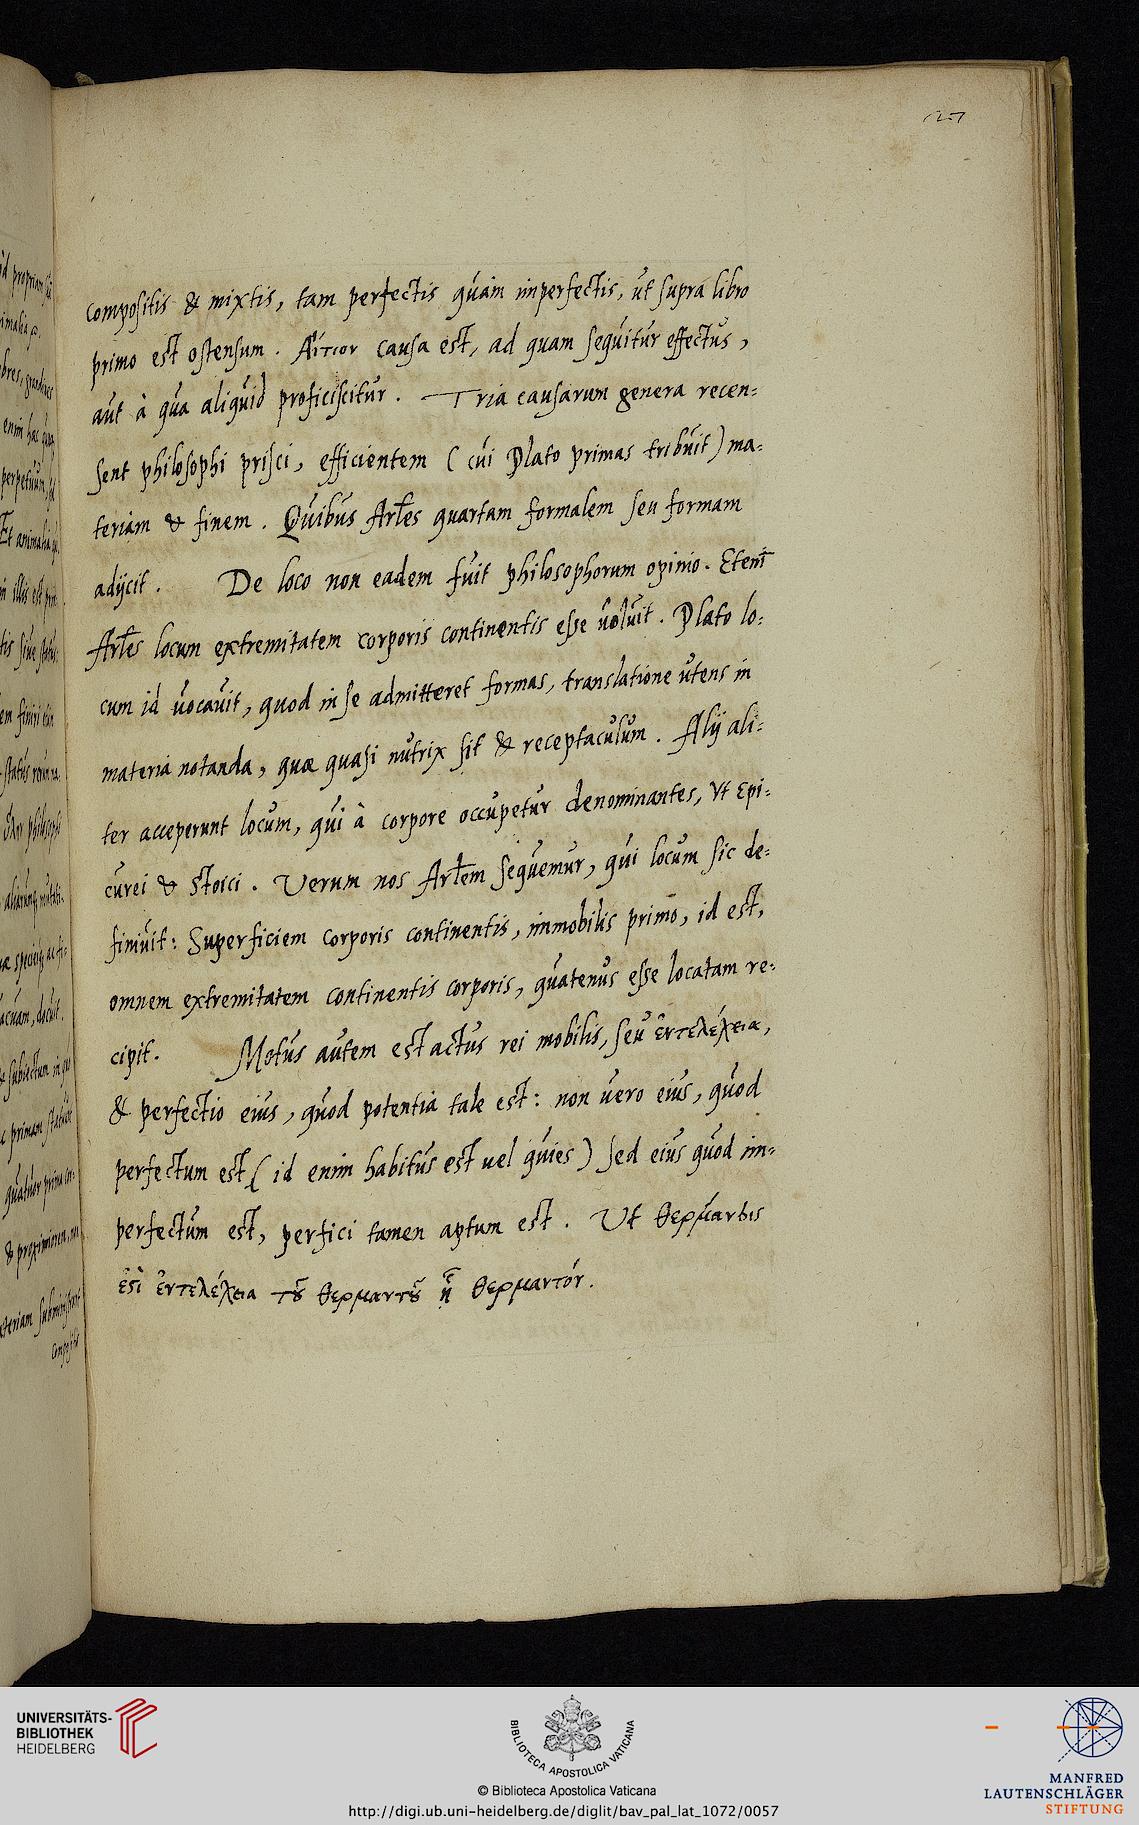 compositis & mixtis, tam perfectis quàm imperfectis, ut supra libro
primo est ostensum. Αἴτιον causa est, ad quam sequitur effectus,
aut à qua aliquid proficiscitur. Tria causarum genera recen-
sent philosophi prisci, efficientem (cui Plato primas tribuit) ma-
teriam & finem. Quibus Arles quartam formalem seu formam
adijcit. De loco non eadem fuit philosophorum opinio. Etenī
Arles locum extremitatem corporis continentis esse voluit. Plato lo-
cum id vocavit, quod in se admitteret formas, translatione utens in
materia notanda, quæ quasi nutrix sit & receptaculum. Alij ali-
ter acceperunt locum, qui à corpore occupetur denominantes, Vt Epi-
curei & Stoici. Verum nos Arlem sequemur, qui locum sic de-
finiuit: Superficiem corporis continentis, immobilis primo, id est,
omnem extremitatem continentis corporis, quatenus esse locatam re-
cipit. Motus autem est actus rei mobilis, seu ἐντελέχεια,
& perfectio eius, quod potentia tale est: non vero eius, quod
perfectum est (id enim habitus est vel quies) sed eius quod im-
perfectum est, perfici tamen aptum est. Ut θέρμανσις
ἐστὶ ἐντελέχεια τοῦ θερμαντοῦ ᾗ θερμαντόν.
UNIVERSITÄTS-
BIBLIOTHEK
HEIDELBERG
BIBLIOTECA APOSTOLICA VATICANA
© Biblioteca Apostolica Vaticana
http://digi.ub.uni-heidelberg.de/diglit/bav_pal_lat_1072/0057
MANFRED
LAUTENSCHLÄGER
STIFTUNG